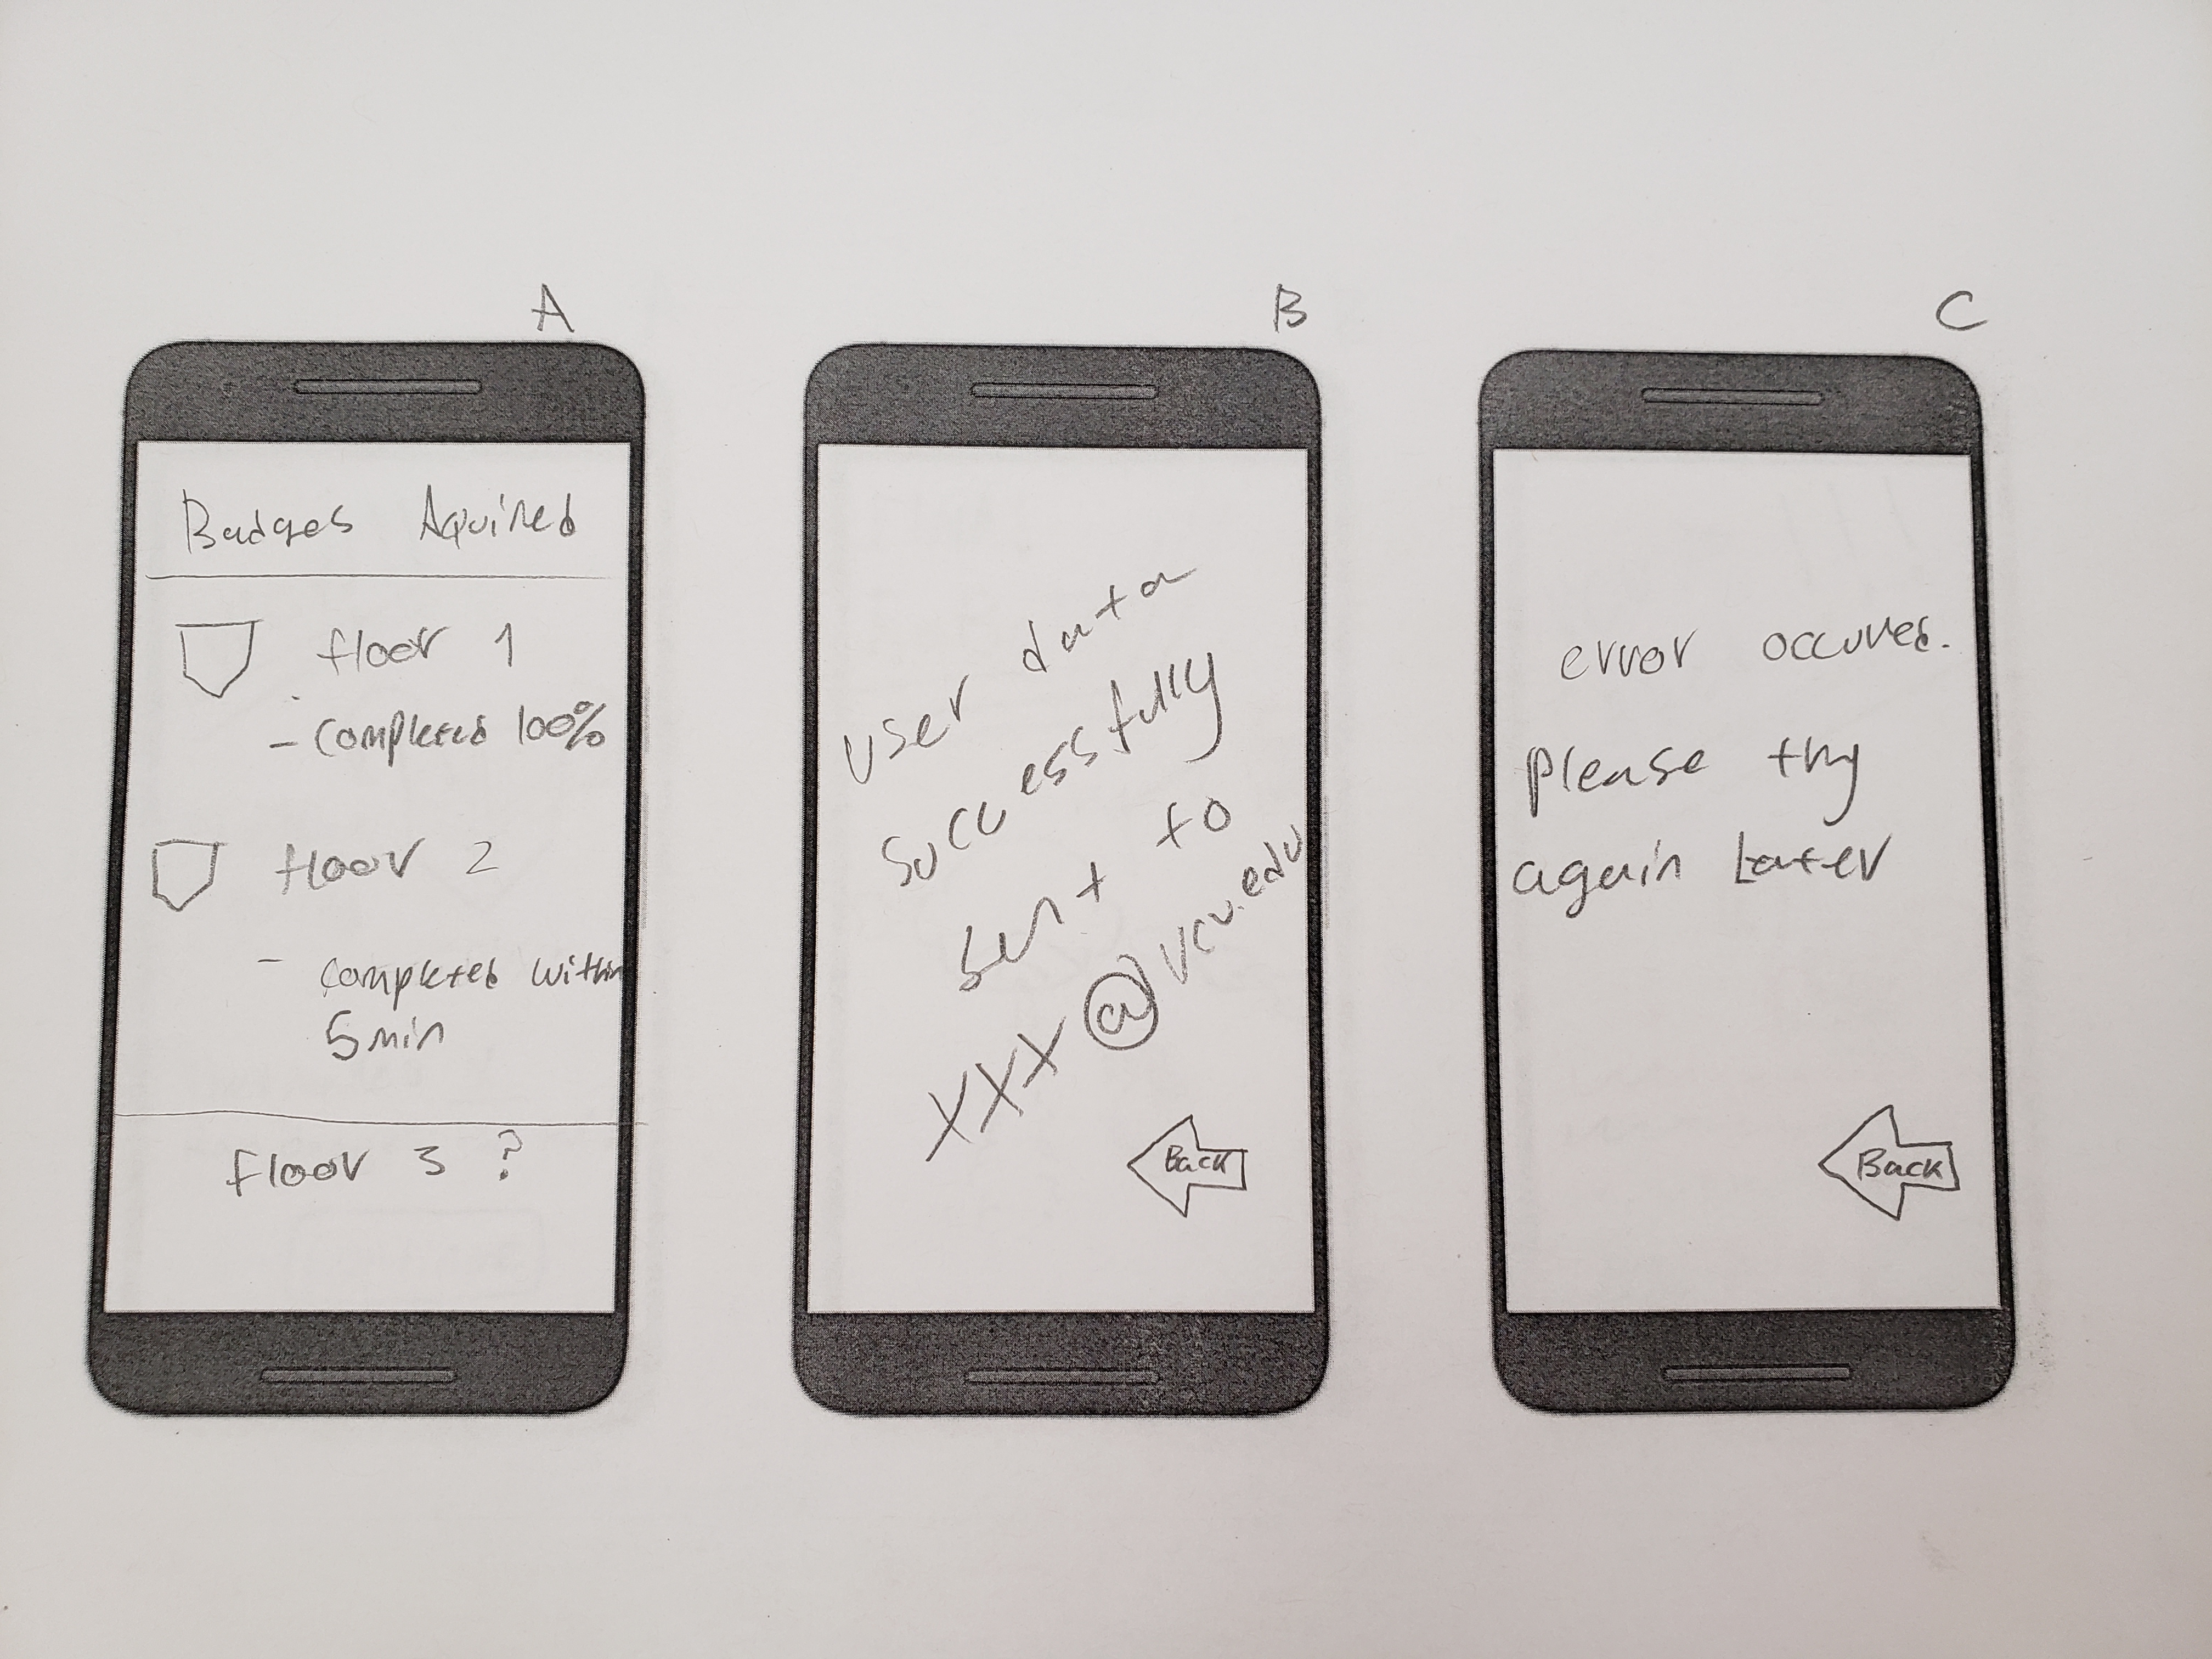 A
Badges Aquired
floor 1
- Completed 100%
floor 2
- completed within
5 min
floor 3 ?
B
User data
successfully
sent to
XXX@vcu.edu
Back
C
error occured.
please try
again Later
Back